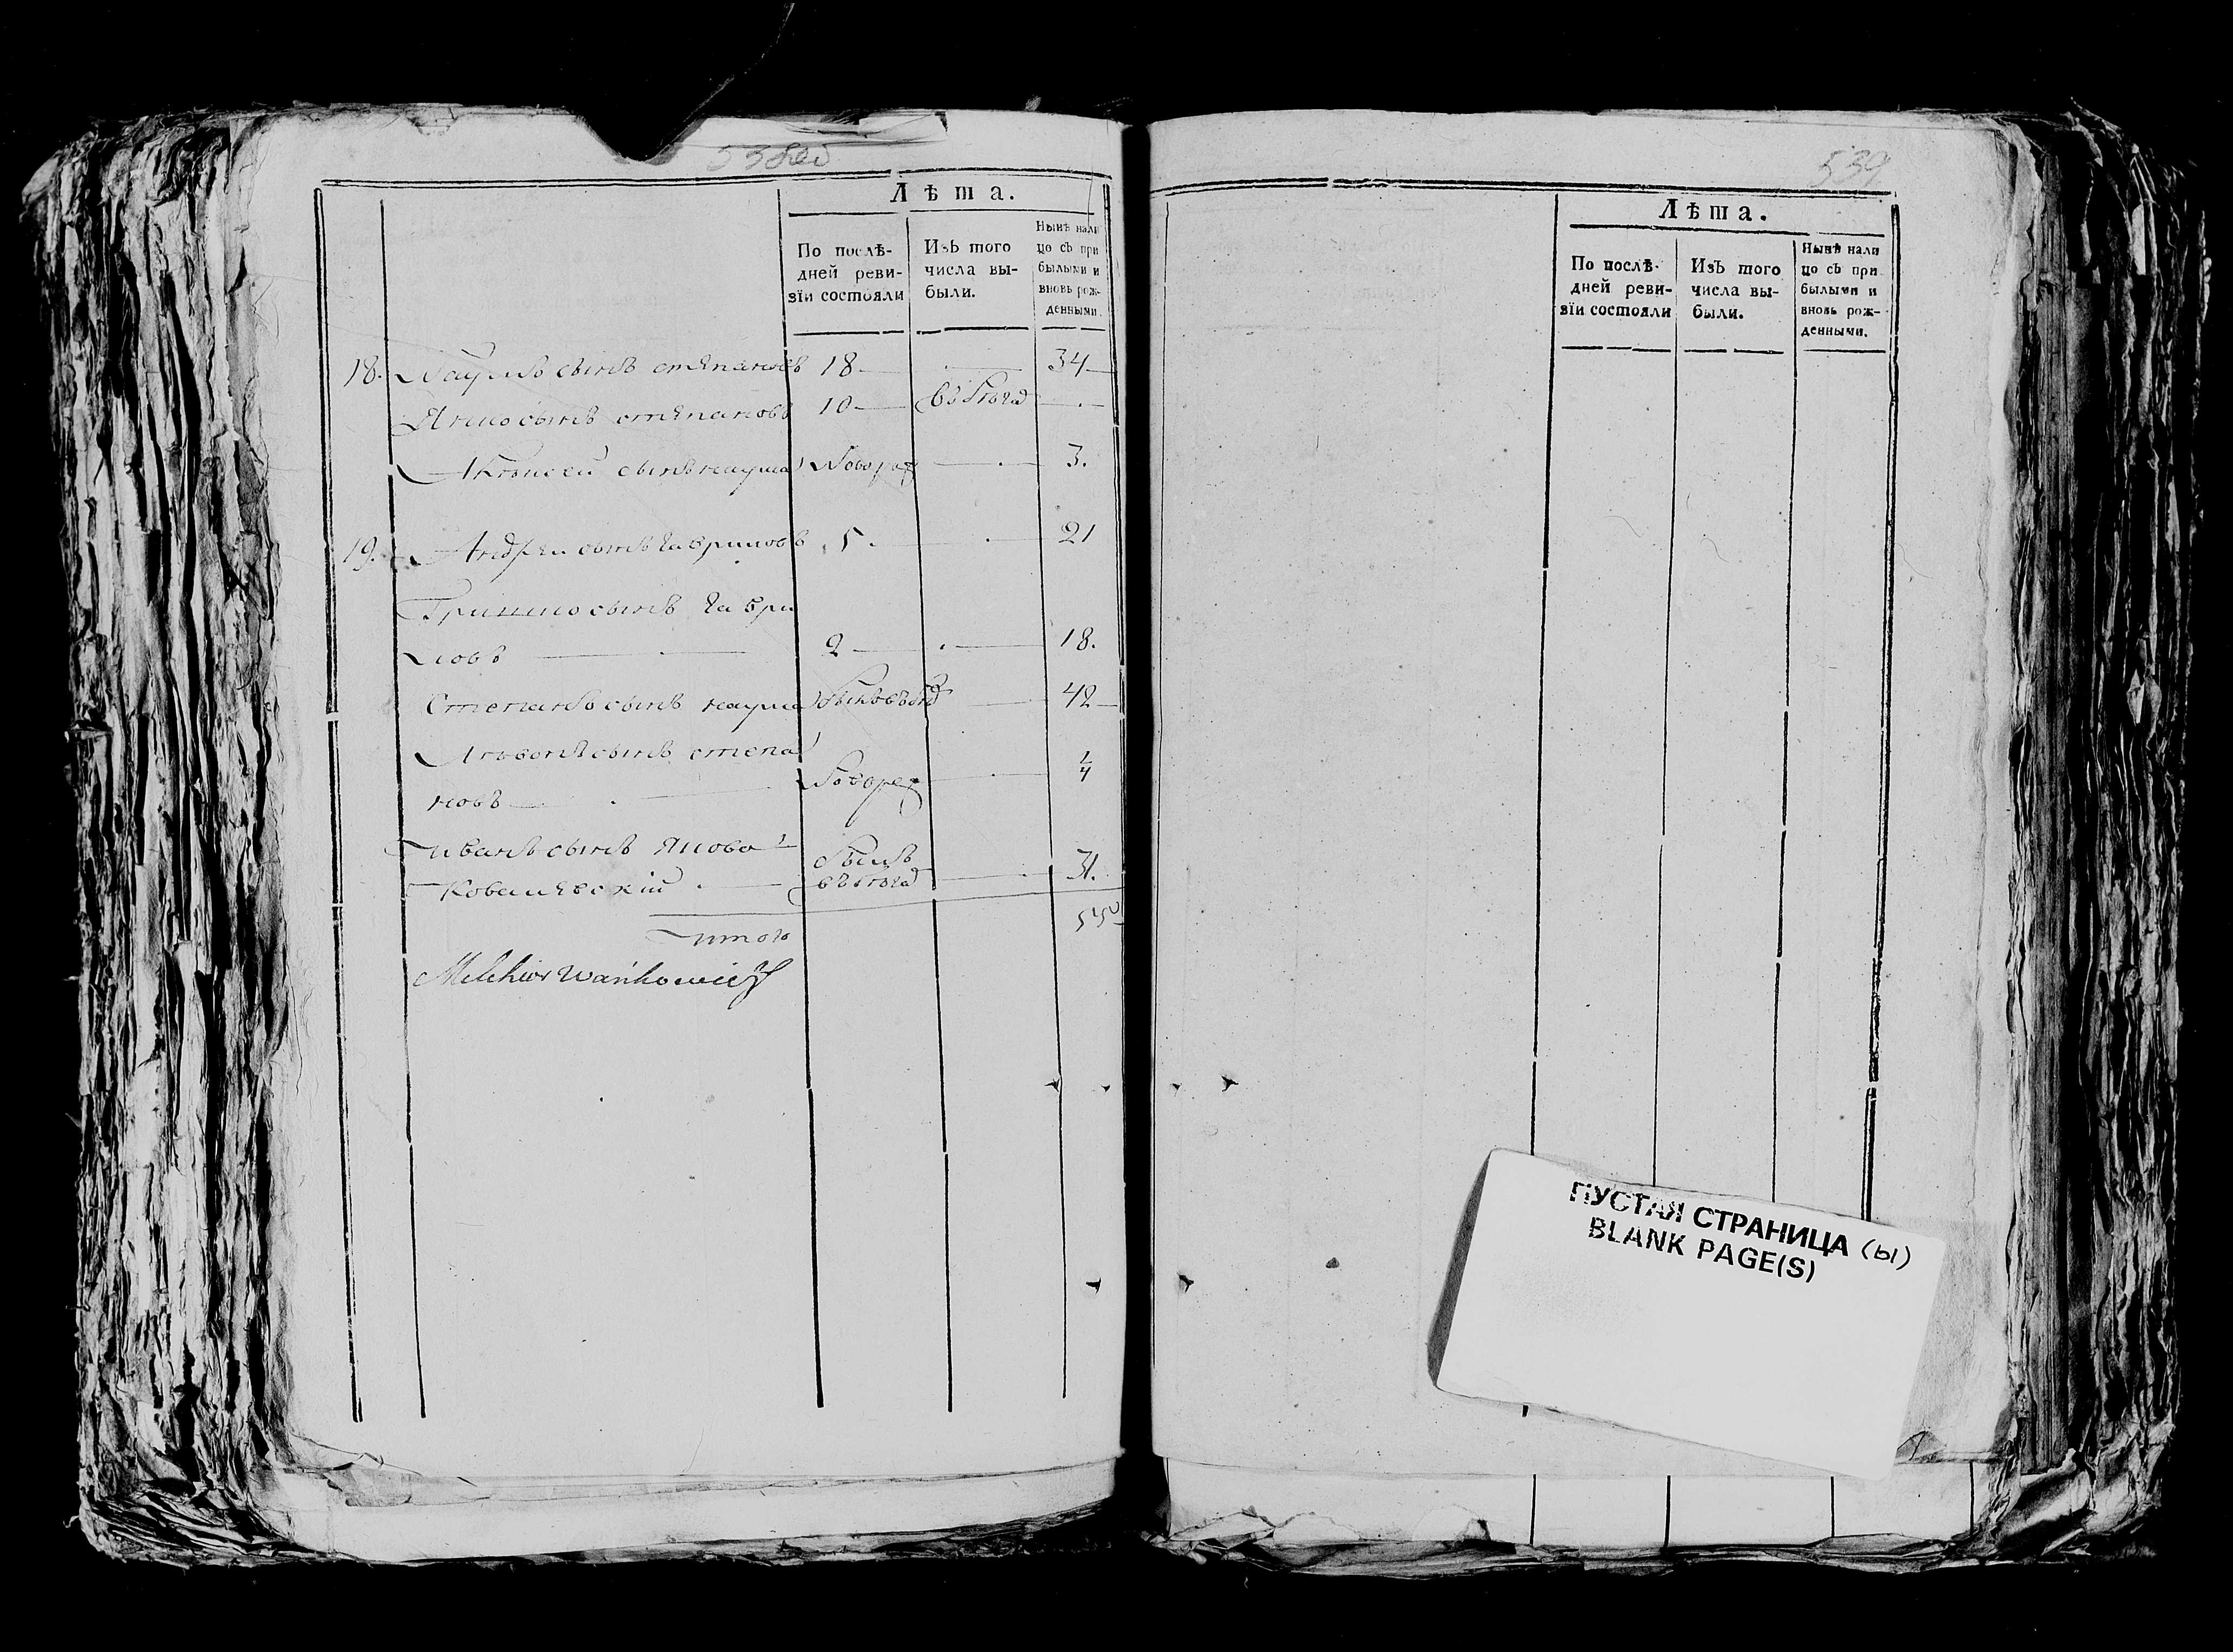 538об
Лѣта.
По послѣ-
дней реви-
зїи состояли
Изъ того
числа вы-
были.
Нынѣ нали
цо съ при
былыми и
вновь рож-
денными.
18. Наумъ сынъ степановъ 18 — 34
Янко сынъ степановъ 10 — въ бѣга
Алѣксей сынъ наума Новорож 3.
19. Андрей сынъ гавриловъ 5. 21
Гришко сынъ гаври
ловъ 2 — 18.
Степанъ сынъ наума 42
сынъ степа
новъ Новорож
иванъ сынъ
Ковалевскiй былъ въ бѣга 31.
итого
Melchior Wańkowicz
539
Лѣта.
По послѣ-
дней реви-
зїи состояли
Изъ того
числа вы-
были.
Нынѣ нали
цо съ при
былыми и
вновь рож-
денными.
ПУСТАЯ СТРАНИЦА (Ы)
BLANK PAGE(S)